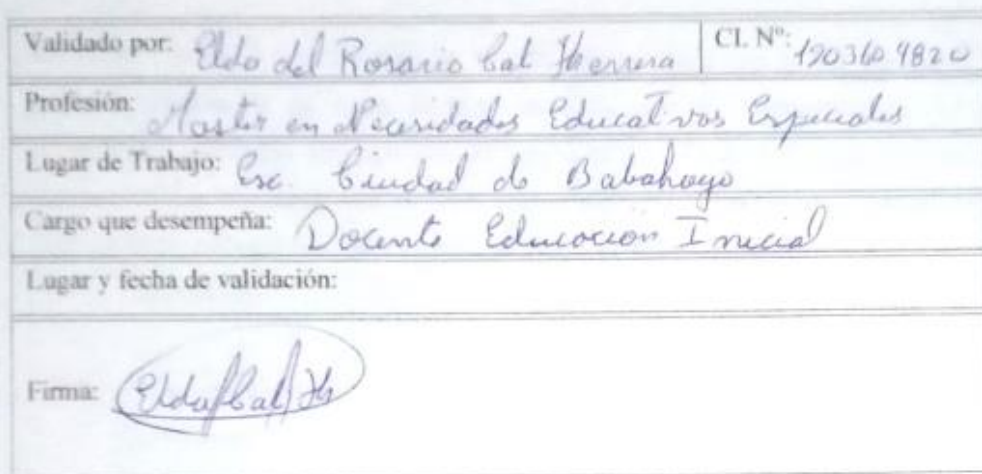 Validado por: Elda del Rosario Cal Herrera CI. Nº: 1203604820
Profesión: Master en Necesidades Educativas Especiales
Lugar de Trabajo: Esc. Ciudad de Babahoyo
Cargo que desempeña: Docente Educacion Inicial
Lugar y fecha de validación:
Firma: Elda Cal H